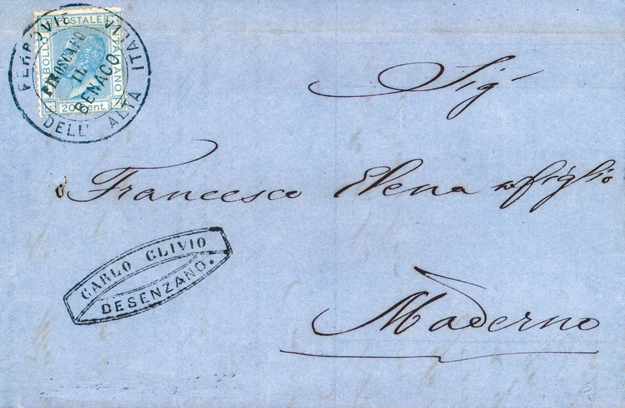 FERROVIE
DELL' ALTA ITALIA
PIROSCAFO
IL
BENACO
BOLLO POSTALE ITALIANO
20 Cent.
Sigr
Francesco Elena e figlio
Maderno
CARLO CLIVIO
DESENZANO.